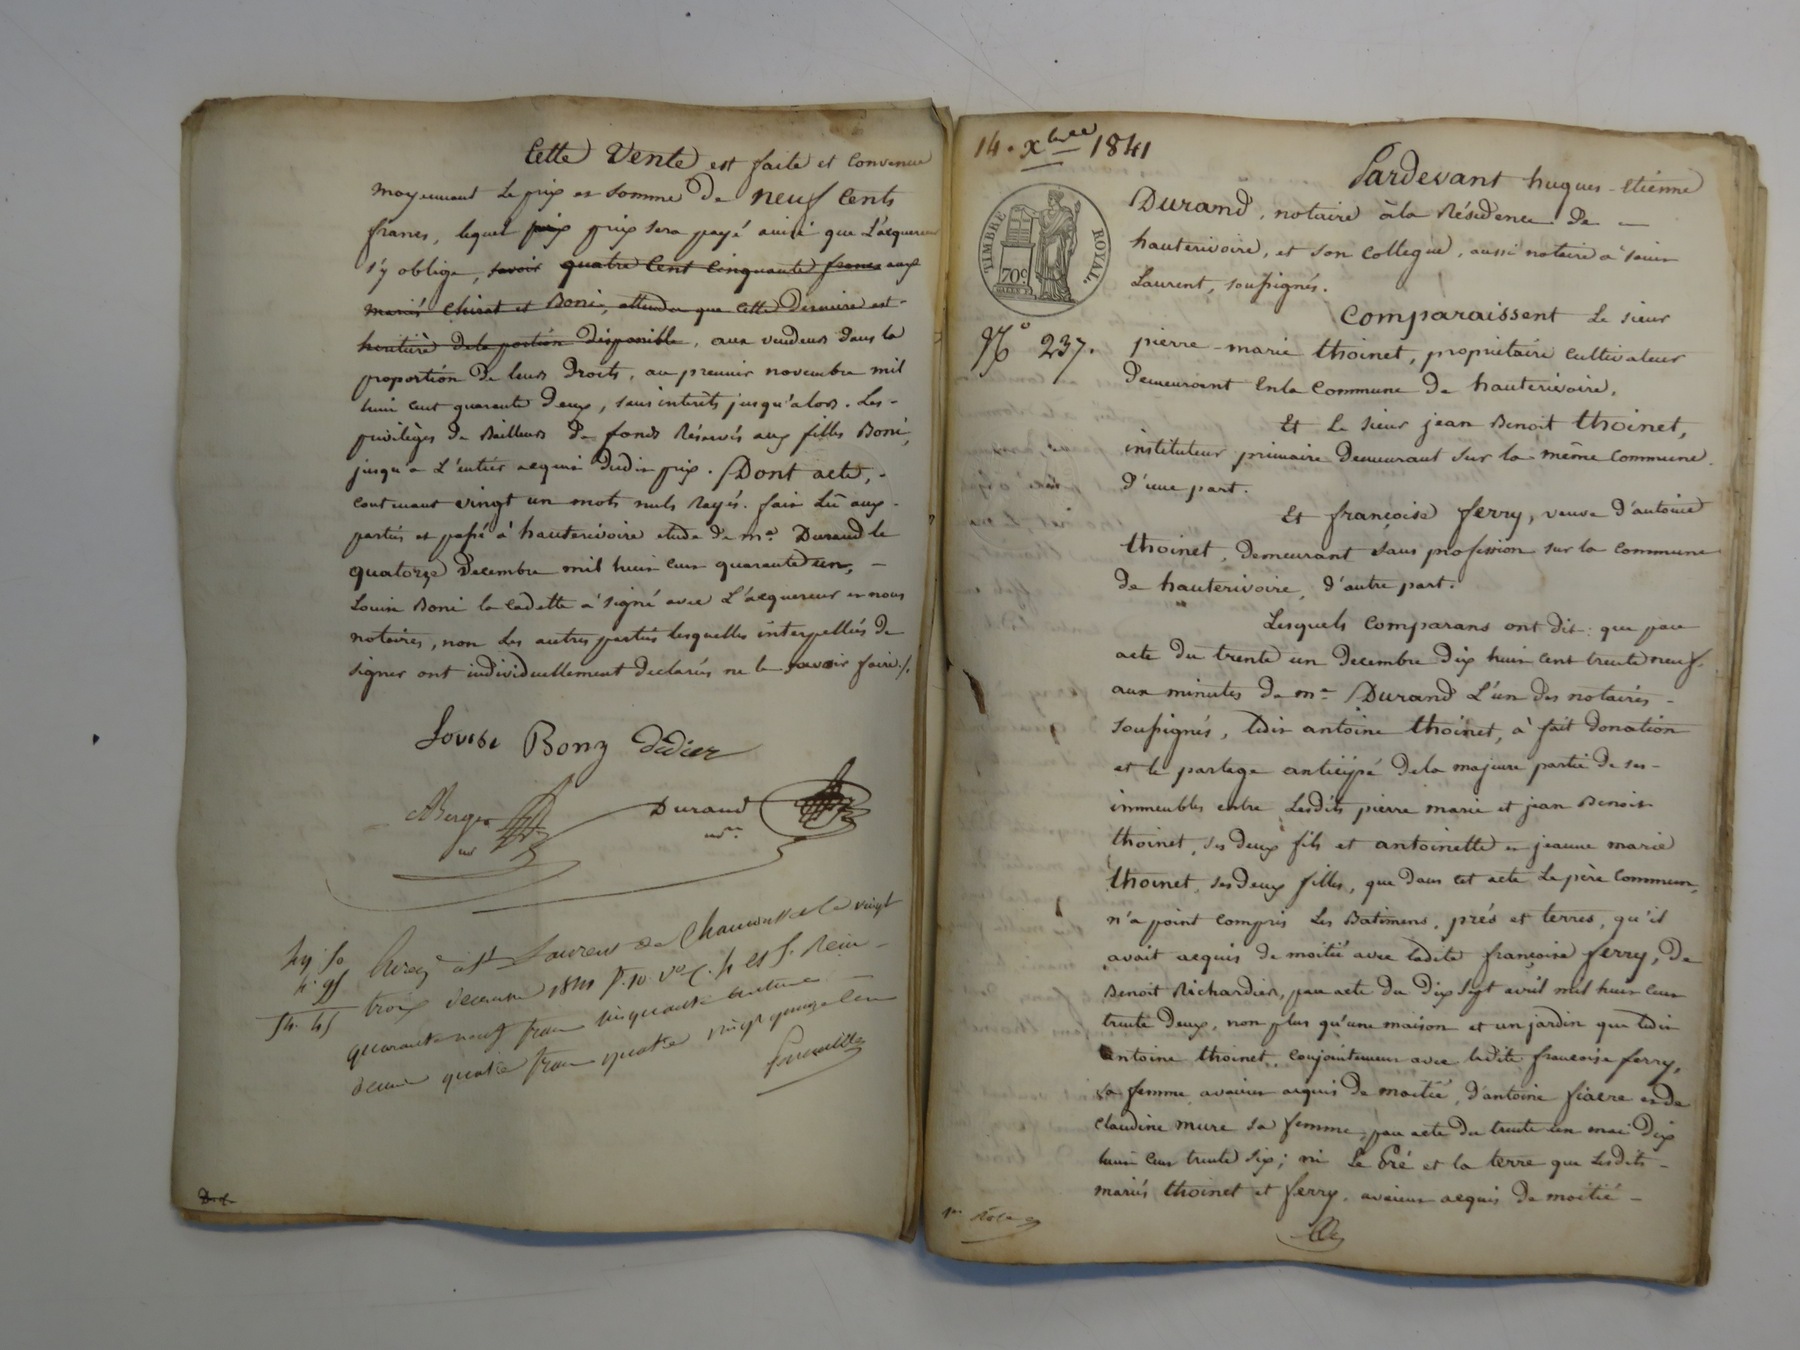 Cette Vente est faite et Convenue
moyennant Le prix et somme De neuf Cents
francs, lequel prix prix sera payé ainsi que L'acquereur
s'y oblige, savoir quatre Cent Cinquante francs aux
mariés Chirat et Boni, attendu que Cette Derniere est-
heritière dela portion Disponible, aux vendeurs Dans la
proportion De leurs Droits, au premier novembre mil
huit cent quarante Deux, sans interêts jusqu'alors. Les-
privilèges De Bailleurs De fonds Réservés aux filles Boni,
jusqu'a L'entier acquit dudit prix. Dont acte, -
Contenant vingt un mots nuls Rayés. fait Lû aux-
parties et passé à hauterivoire etude De me. Durand le
quatorze Decembre mil huit cent quarante un, -
Louise Boni la Cadette à signé avec L'acquereur et nous
notaires, non Les autres parties lesquelles interpellées De
signer ont individuellement declarés ne le savoir faire./.
Louise Bony Didier
Berger Durand
not nre
49 50
4. 95
54. 45
Enregé à St Laurent de Chamousset le vingt
trois decembre 1841 f. 10. Vo C. 4 et 5. Reçu -
quarante neuf francs cinquante centimes
decime quatre francs quatre vingt quinze cent
14. Xbre 1841
TIMBRE ROYAL.
70c.
No 237.
Pardevant hugues-Etienne
Durand, notaire àla Résidence De -
hauterivoire, et son Collegue, aussi notaire à saint
Laurent, soussignés.
Comparaissent Le sieur
pierre-marie thoinet, propriétaire Cultivateur
Demeurant Enla Commune De hauterivoire.
Et Le sieur jean Benoit thoinet,
instituteur primaire Demeurant sur la même Commune.
D'une part.
Et françoise ferry, veuve d'antoine
thoinet, Demeurant sans profession sur la Commune
De hauterivoire, D'autre part.
Lesquels Comparans ont dit: que par
acte du trente un Decembre Dix huit Cent trente neuf.
aux minutes De me Durand L'un Des notaires-
soussignés, ledit antoine thoinet, à fait Donation
et le partage anticipé Dela majeure partie De ses-
immeubles entre Lesdits pierre marie et jean Benoit
thoinet, ses Deux fils et antoinette et jeanne marie
thoinet, ses Deux filles, que Dans cet acte Le père Commun,
n'a point Compris Les Batimens, prés et terres, qu'il
avait acquis De moitié avec ladite françoise ferry, De
Benoit Richardier, par acte Du Dix sept avril mil huit Cent
trente Deux, non plus qu'une maison et un jardin que ledit
antoine thoinet, Conjointement avec ladite francoise ferry,
sa femme avaient acquis De moitié, D'antoine fiacre et De
Claudine mure sa femme, par acte Du trente un mai Dix
huit Cent trente six; ni Le Pré et la terre que Lesdits-
mariés thoinet et ferry, avaient acquis De moitié -
1er Role